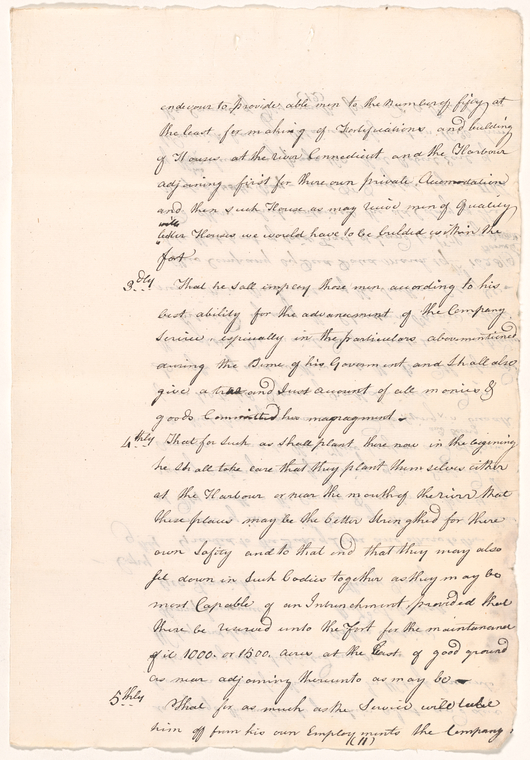 endevour to provide able men to the number of fifty at
the least for making of Fortifications and building
of Houses at the river Connecticut and the Harbour
adjoining first for there own private Acomodation
and then such House as may reive men of Quality
with
latter Houses we would have to be builded within the
fort
3dly That he sall imploy those men according to his
best ability for the advancement of the Company
Service especially in the particulars abovementioned
during the Time of his Goverment and Shall also
give a true and Just account of all monies &
goods Committed his
4thly That for such as shall plant there now in the beginning
he shall take care that they plant themselves either
at the Harbour or near the mouth of the river that
these places may be the better Strengthed for there
own Safety and to that end that they may also
set down in such Bodies together as they may be
most Capable of an Intrenchment provided that
there be reserved unto the Fort for the maintanance
of it 1000. or 1500. acres at the least of good ground
as near adjoining thereunto as may be
5thly That for as much as the Service will take
him off from his own Employments the Company
(11)